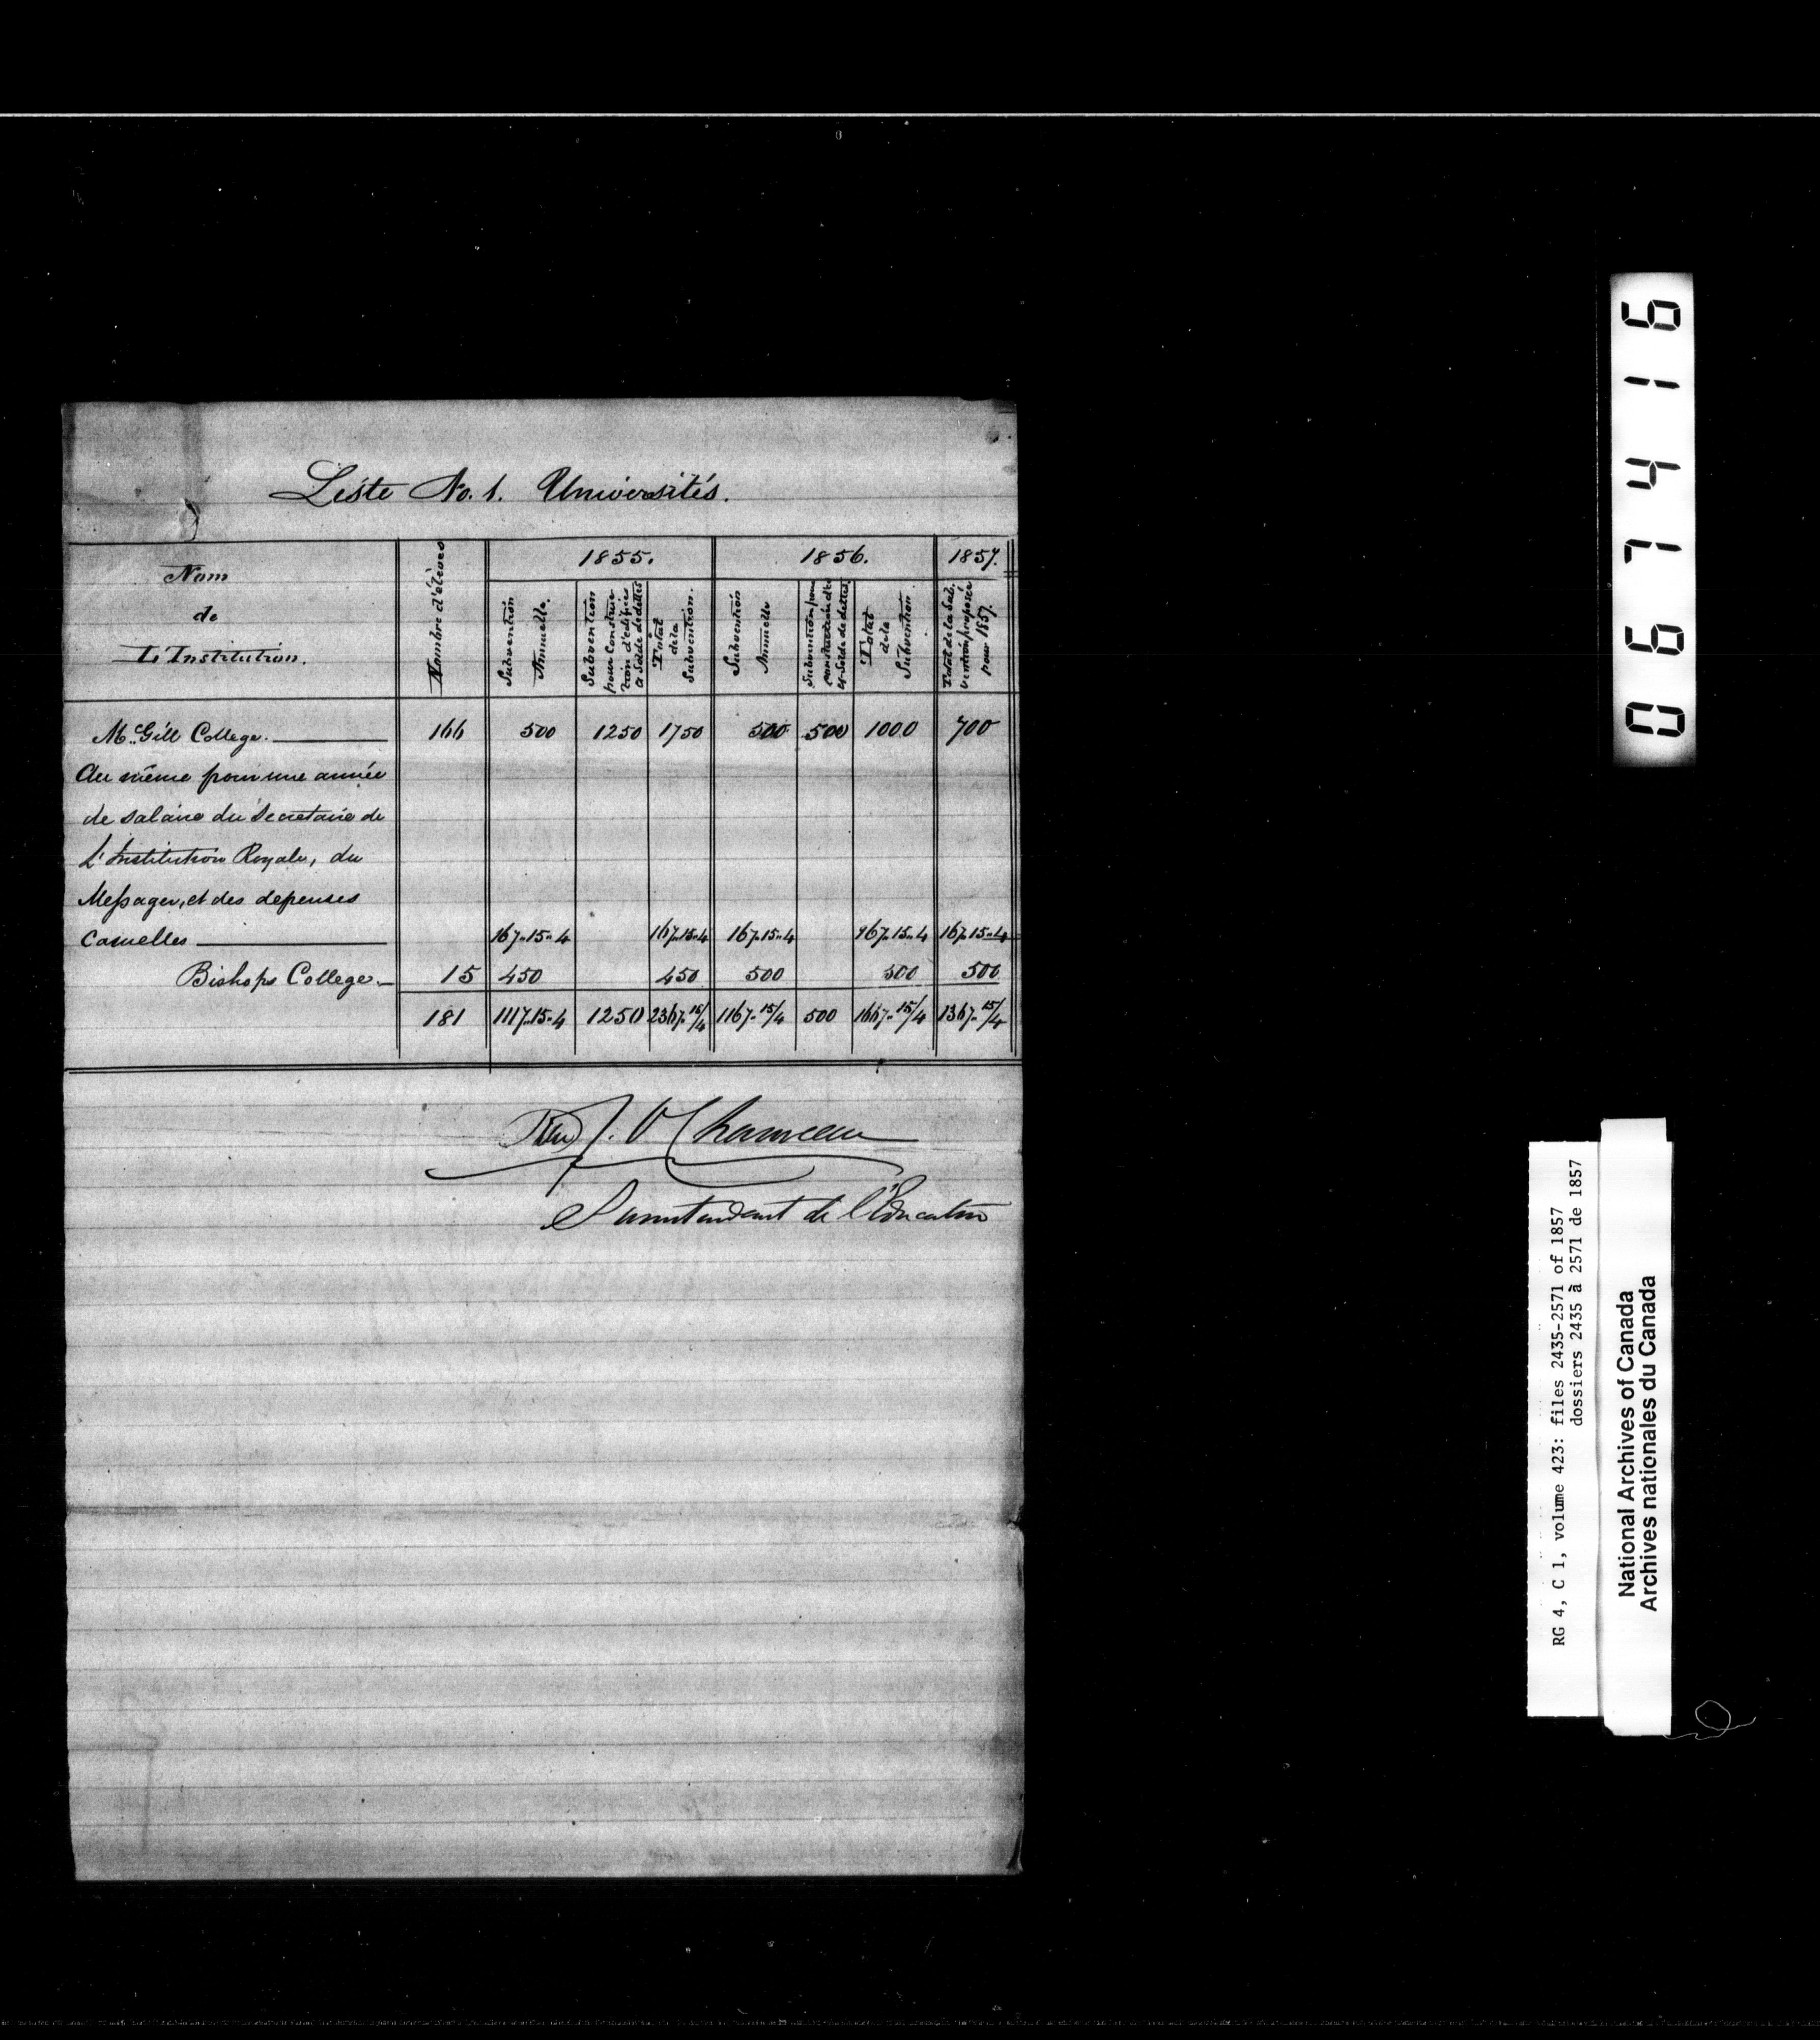 Liste No. 1. Universités.
Nom de L'Institution. | Nombre d'élèves | 1855. | 1856. | 1857.
Subvention Annuelle. | Subvention pour Construction d'édifices et Solde de dettes | Total de la Subvention. | Subvention Annuelle | Subvention pour construction d'éd. et Solde de dettes. | Total de la Subvention. | Total de la Subvention proposée pour 1857.
McGill College. | 166 | 500 | 1250 | 1750 | 500 | 500 | 1000 | 700
Au même pour une année
de salaire du Secretaire de
L'Institution Royale, du
Messager, et des depenses
Casuelles | 167..15..4 | 167..15..4 | 167..15..4 | 167..15..4 | 167..15..4
Bishops College. | 15 | 450 | 450 | 500 | 500 | 500
181 | 1117..15..4 | 1250 | 2367..15/4 | 1167..15/4 | 500 | 1667..15/4 | 1367..15/4
J. O Chauveau
Surintendant de l'Éducation
067416
RG 4, C 1, volume 423: files 2435-2571 of 1857
dossiers 2435 à 2571 de 1857
National Archives of Canada
Archives nationales du Canada